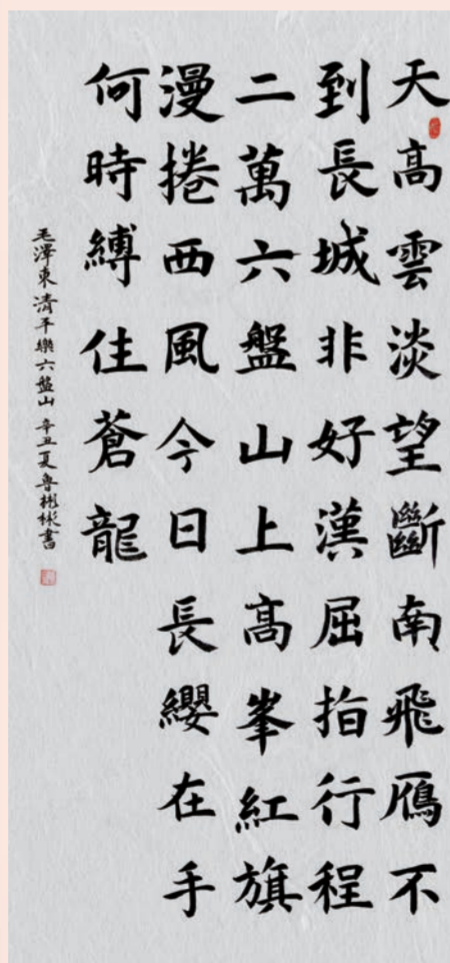 天髙雲淡望斷南飛鴈不
到長城非好漢屈指行程
二萬六盤山上髙峯紅旗
漫捲西風今日長纓在手
何時縛住蒼龍
毛澤東清平樂六盤山 辛丑夏魯彬彬書